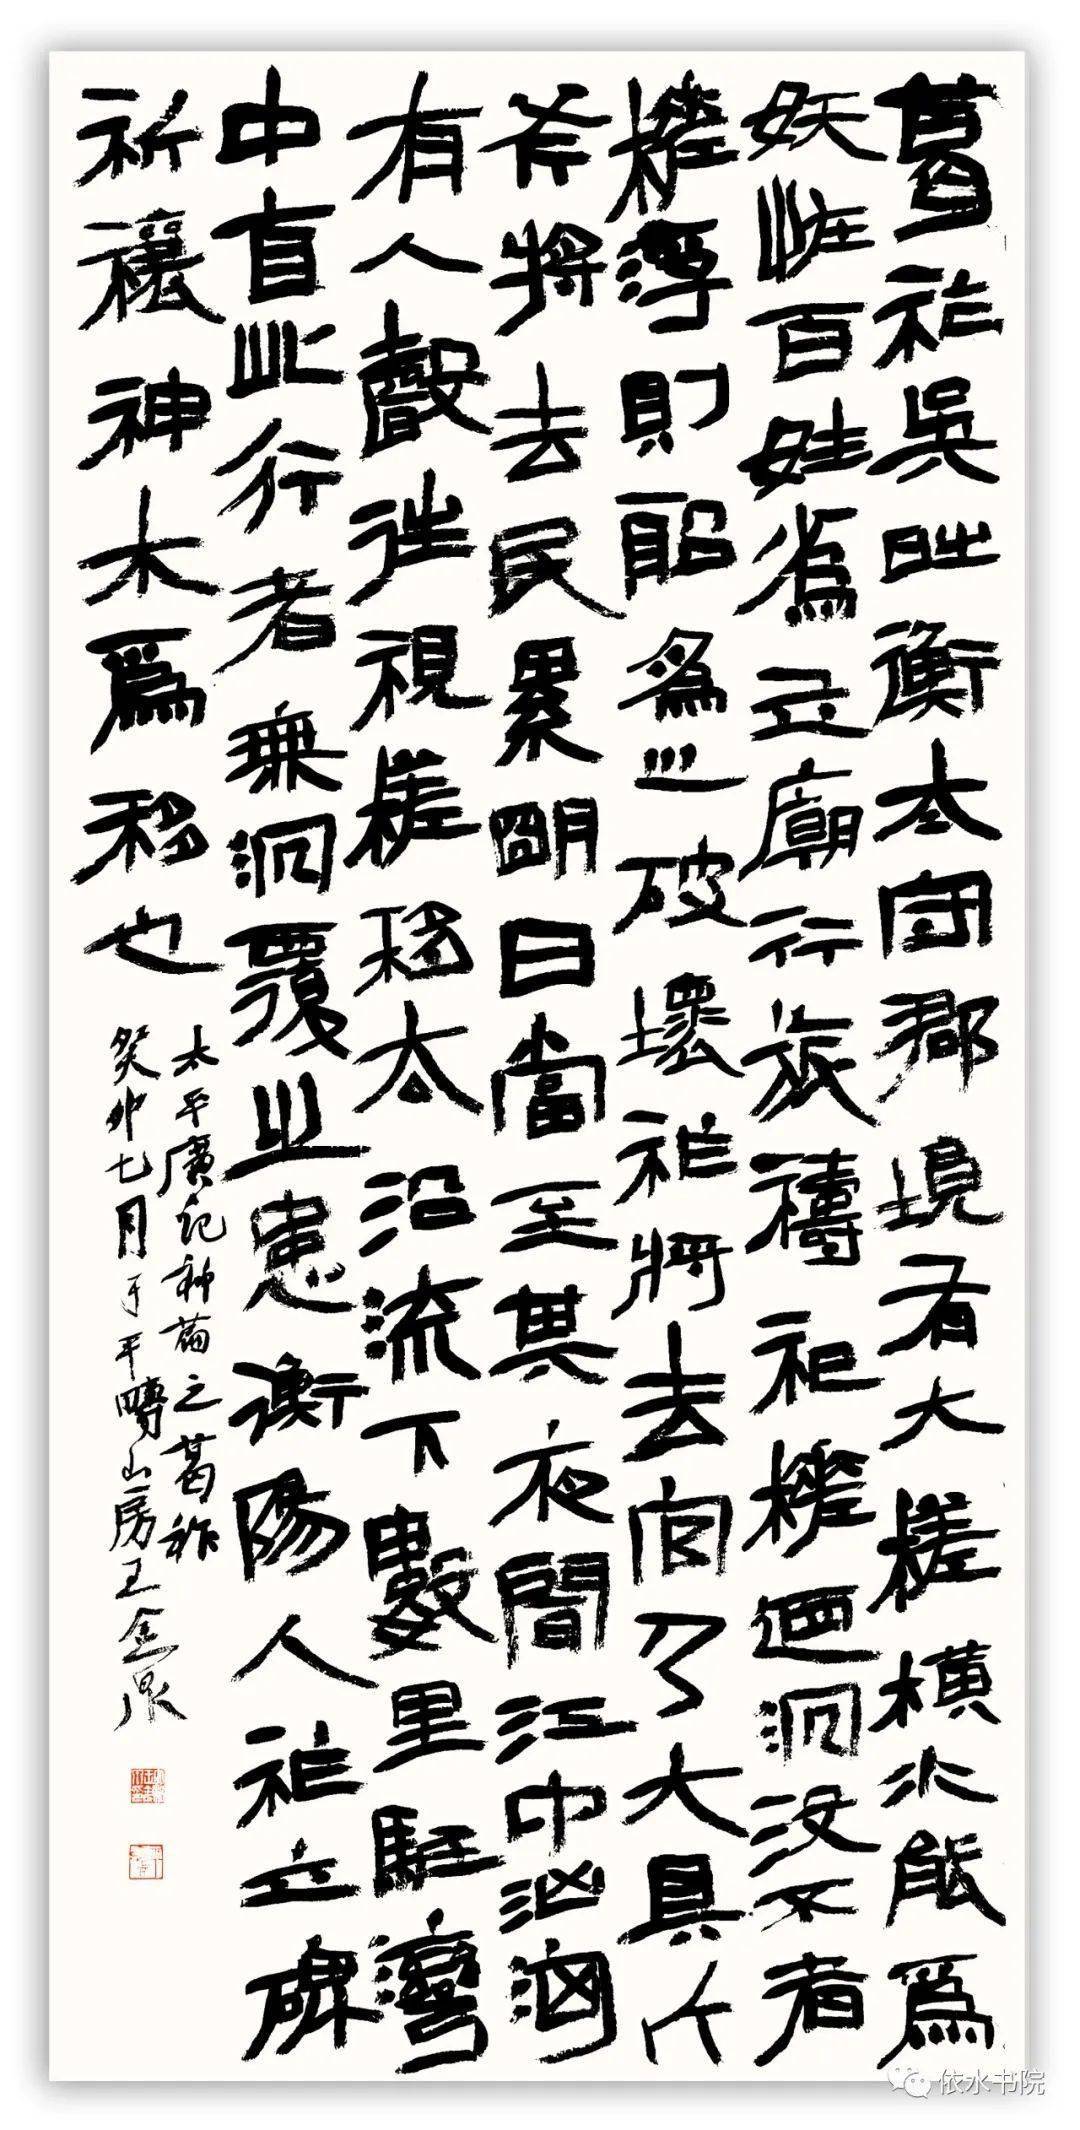 葛祚吳時衡太守郡境有大槎橫水能爲
妖恠百姓爲立廟行旅禱祀槎迺沉沒不者
槎浮則船爲之破壞祚將去官乃大具斤
斧將去民累明日當至其夜聞江中洶洶
有人聲往視槎移太沿流下數里駐灣
中自此行者無沉覆之患衡陽人祚立碑
祈禳神木爲移也
太平廣記神篇之葛祚
癸卯七月于平疇山房王金泉
依水书院